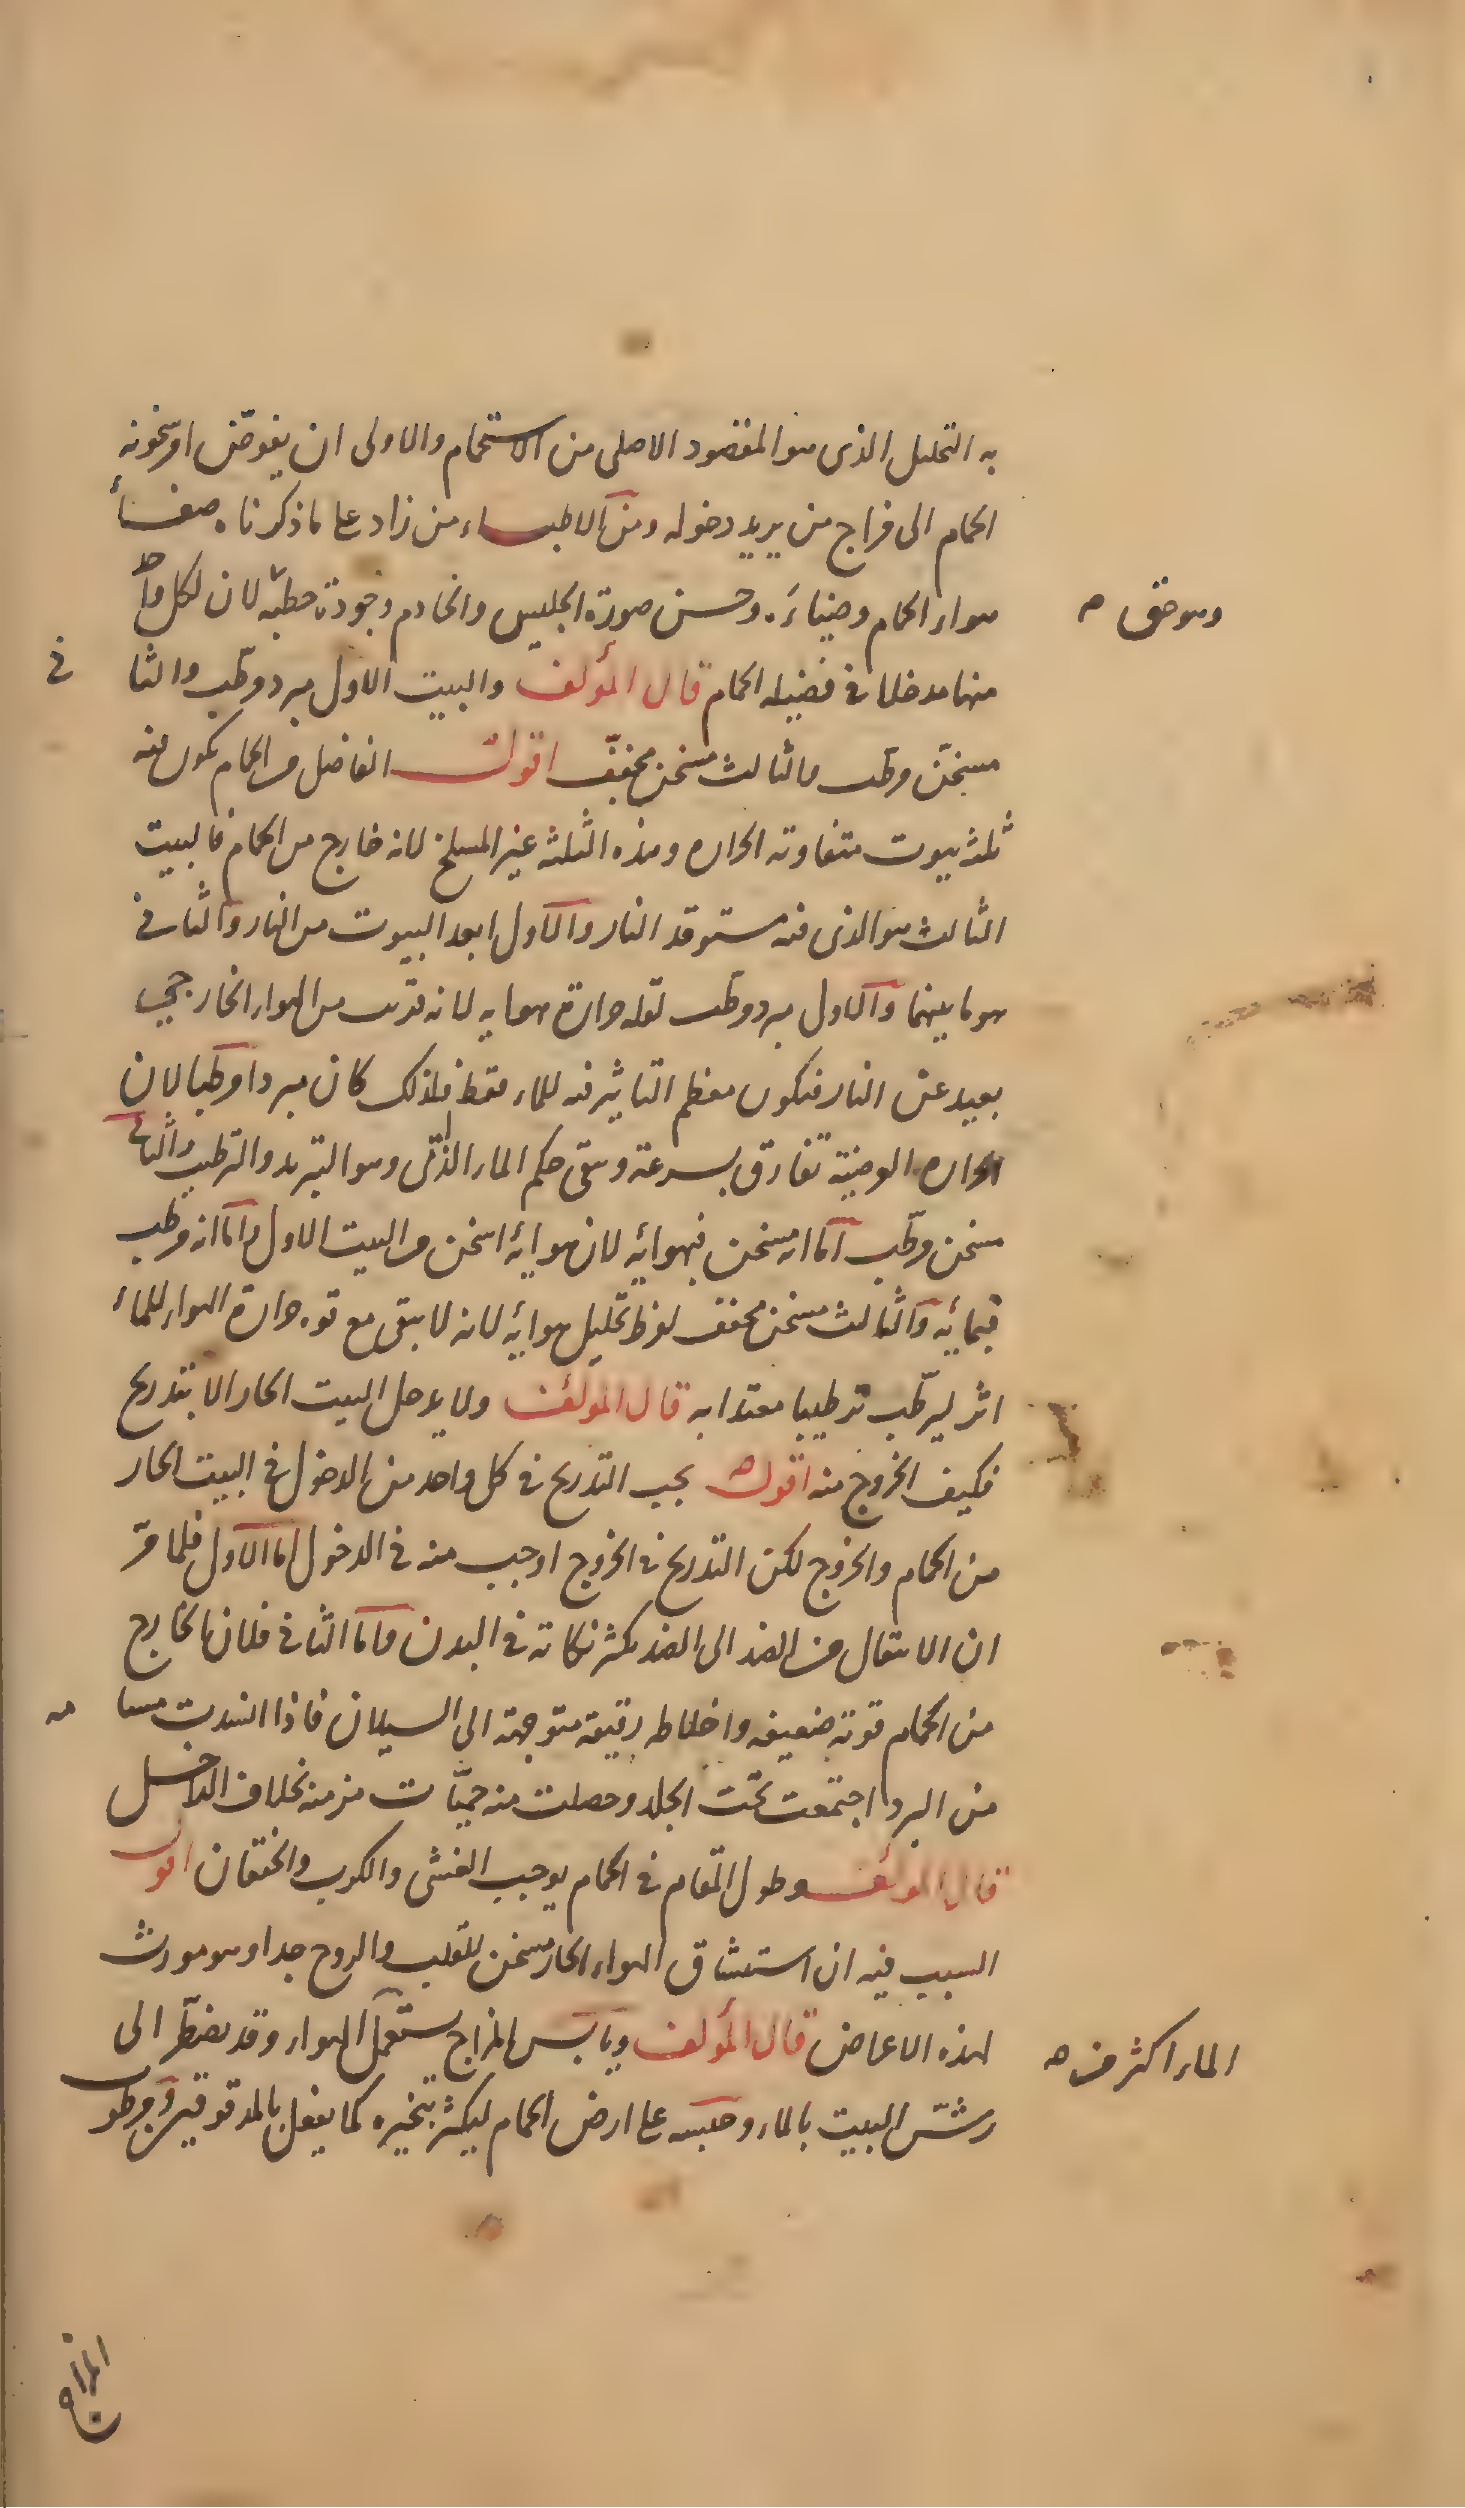 به التحليل الذى هو المقصود الاصلى من الاستحمام والاولى ان يفوض امر سخونه
الحمام الى مزاج من يريد دخوله ومن الاطباء من زاد على ما ذكرناه صفاء
هواء الحمام وضياءه وحسن صورة الجليس والخادم وجودة حطبه لان لكل واحد
وهو حق صح
منها مدخلا فى فضيله الحمام قال المؤلف والبيت الاول مبرد مرطب والثا
نى
مسخن مرطب والثالث مسخن مجفف اقول الفاضل من الحمام يكون فيه
ثلثه بيوت متفاوته الحراره وهذه الثلثه غير المسلخ لانه خارج من الحمام فالبيت
الثالث هو الذى فيه مستوقد النار والاول ابعد البيوت من النار والثانى
هو ما بينهما والاول مبرد مرطب لقله حرارة هوايه لانه قريب من الهواء الخارجى
بعيد عن النار فيكون معظم التاثير فيه للماء فقط فلذلك كان مبردا مرطبا لان
الحراره العرضية تفارق بسرعة ويبقى حكم الماء الذاتى وهو التبريد والترطيب والثانى
مسخن مرطب اما انه مسخن فبهوائه لان هوايه اسخن من البيت الاول واما انه مرطب
فبمائه والثالث مسخن مجفف لفرط تحليل هوايه لانه لا يبقى مع قوه حرارة الهواء للماء
اثر ليرطب ترطيبا معتدا به قال المؤلف ولا يدخل البيت الحار الا بتدريج
فكيف الخروج منه اقول يجب التدريج فى كل واحد من الدخول فى البيت الحار
من الحمام والخروج لكن التدريج فى الخروج اوجب منه فى الدخول اما الاول فلما مر
ان الانتقال من الضد الى الضد يكثر نكاته فى البدن واما الثانى فلان الخارج
من الحمام قوته ضعيفه واخلاطه رقيقة متوجهة الى السيلان فاذا انسدت مسا
مه
من البرد اجتمعت تحت الجلد وحصلت منه حميات مزمنه بخلاف الداخل
قال المؤلف وطول المقام فى الحمام يوجب الغشى والكرب والخفقان اقول
السبب فيه ان استنشاق الهواء الحار مسخن للقلب والروح جدا وهو مورث
لهذه الاعراض قال المؤلف ويابس المزاج يستعمل الهواء وقد يضطر الى
الماء اكثر من صح
رش البيت بالماء وحبسه على ارض الحمام ليكثر بتخيره كما يفعل بالمدقوقين ومرطوب
المزاج